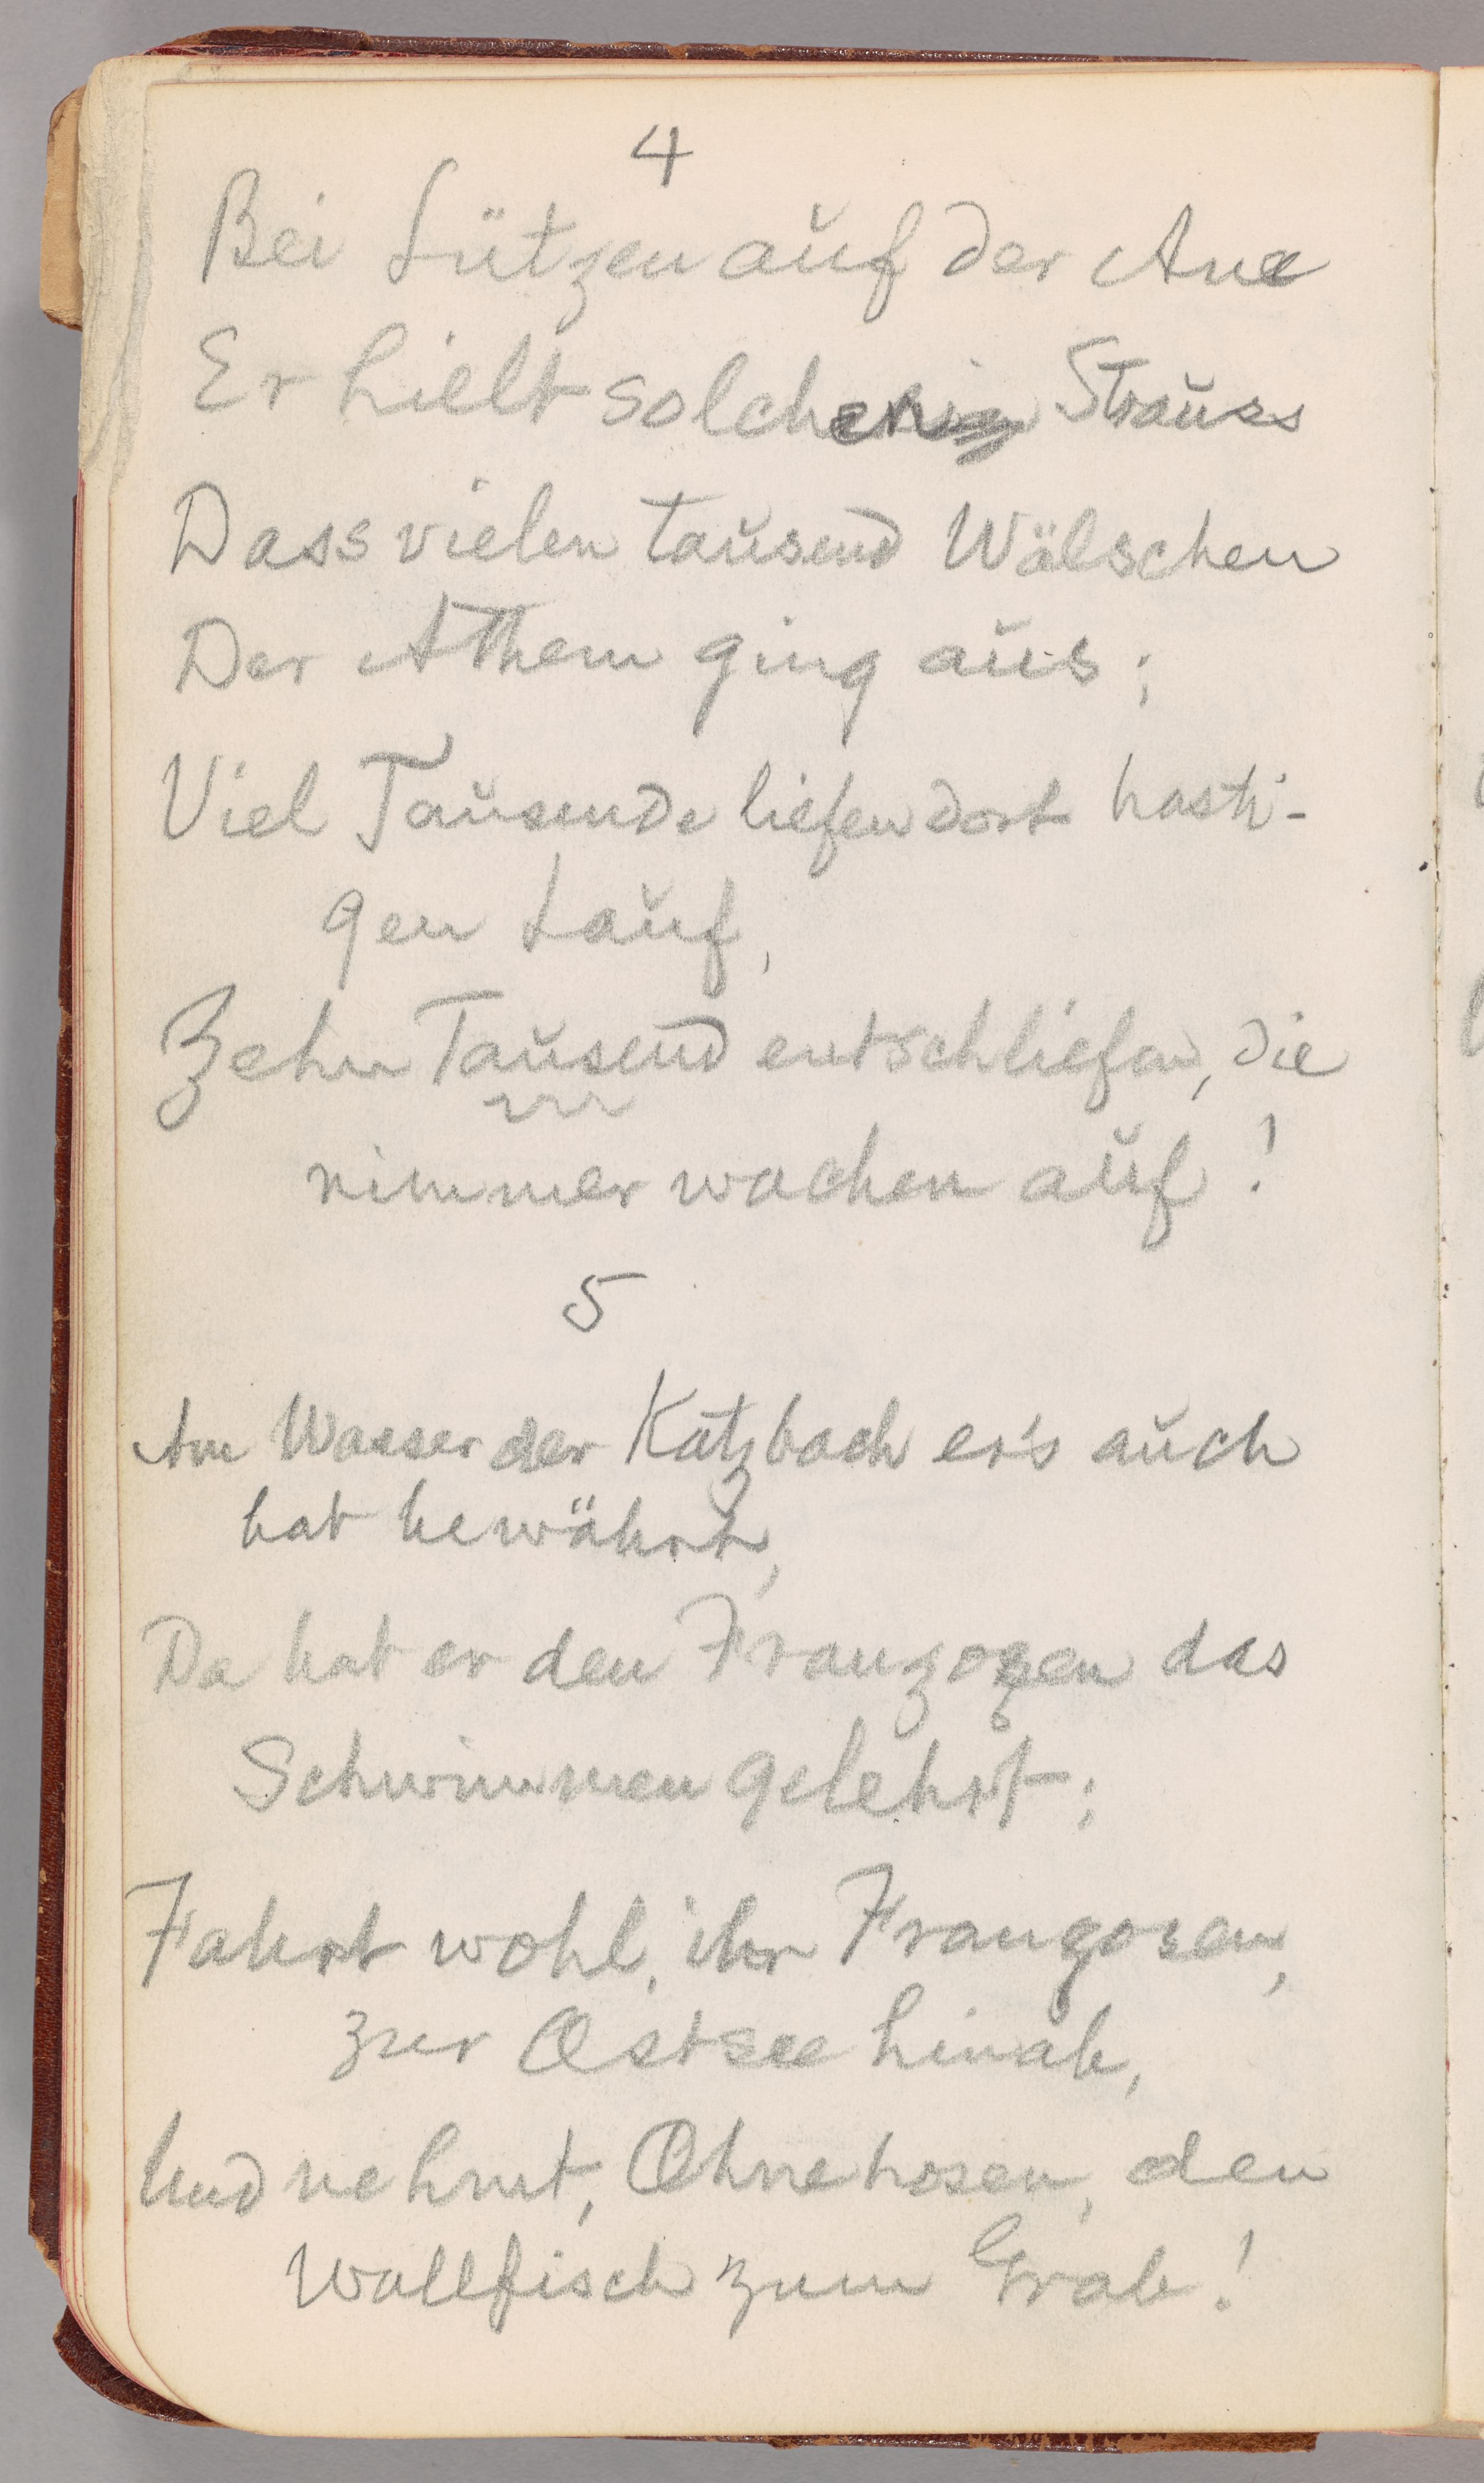 4
Bei Lützen auf der Aue
Er hielt solchen Strauss
Dass vielen tausend Wälschen
Der Athem ging aus;
Viel Tausende liefen dort hasti-
gen Lauf,
Zehn Tausend entschliefen, die
nimmer wachen auf!
5
Am Wasser der Katzbach er's auch
hat bewährt,
Da hat er den Franzosen das
Schwimmen gelehrt;
Fahrt wohl, ihr Franzosen,
zur Ostsee hinab,
Und nehmt, Ohnehosen, den
Wallfisch zum Grab!